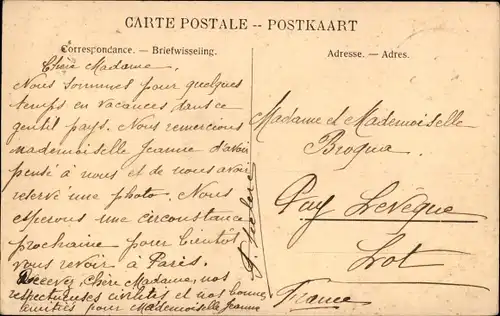 CARTE POSTALE -- POSTKAART
Correspondance. — Briefwisseling.
Chère Madame,
Nous sommes pour quelques
temps en vacances dans ce
gentil pays. Nous remercions
mademoiselle Jeanne d'avoir
pensé à nous et de nous avoir
reservé une photo. Nous
esperons une circonstance
prochaine pour bientot
vous revoir à Paris.
Recevez, Chère Madame, nos
respectueuses civilités et nos bonnes
amitiés pour Mademoiselle Jeanne
Adresse. — Adres.
Madame et Mademoiselle
Broqua
Puy Levèque
Lot
France